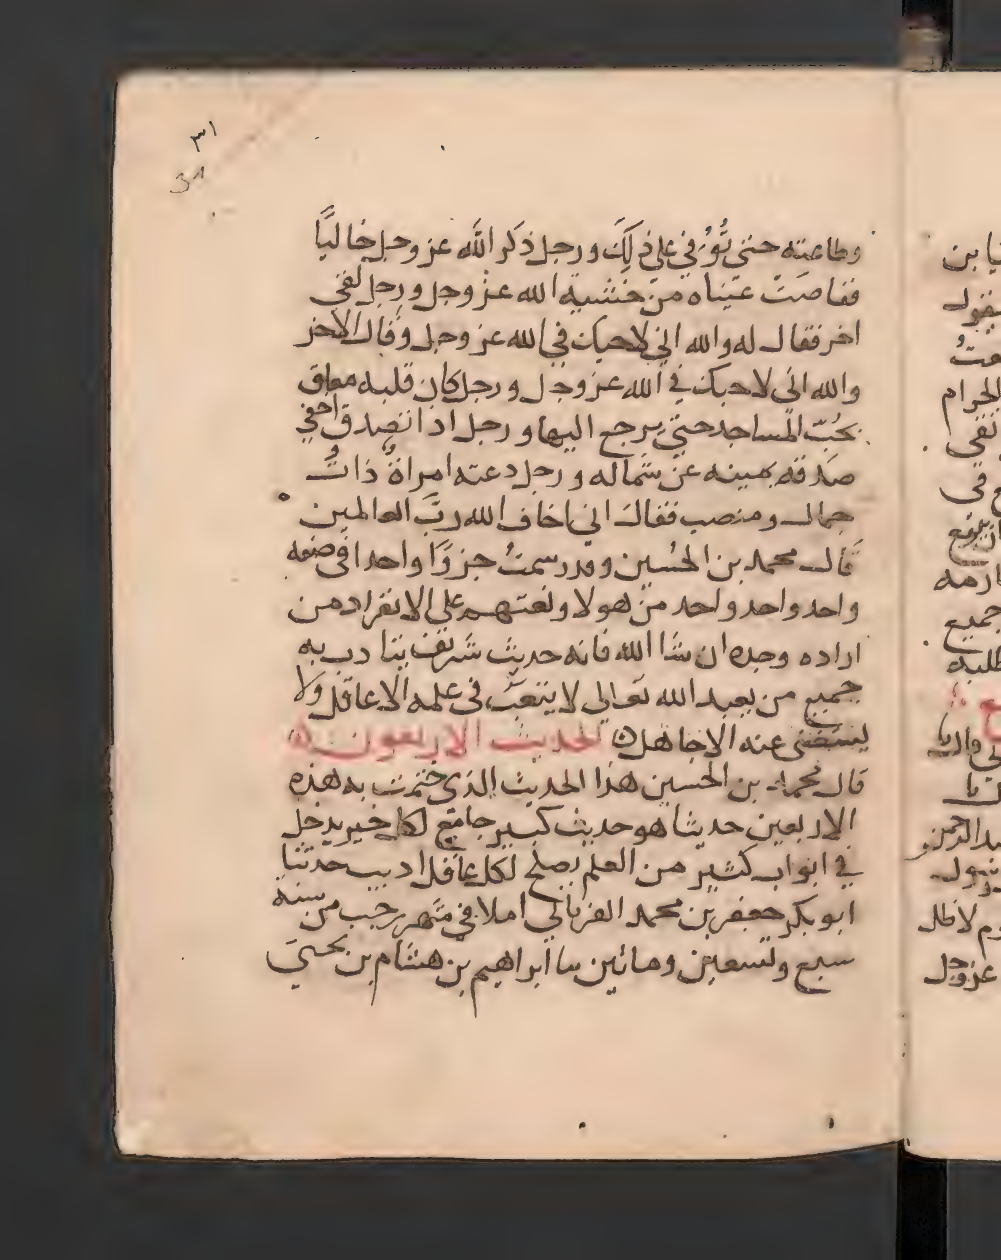 ٣١
31
وطاعته حتى تُوُفي على ذلِكَ ورجل ذكر الله عز وجل خاليًا
ففاضَتْ عَيناه من خشية الله عز وجل ورجل لقي
اخر فقال له والله اني لاحبك في الله عز وجل وقال الاخر
والله اني لاحبك في الله عز وجل ورجل كان قلبه معلق
بحُبّ المساجد حتى يرجع اليها ورجل اذا تصدق اخفي
صدقه يمينه عن شماله ورجل دعته امراةٌ ذاتُ
جمال ومنصب فقال اني اخاف الله ربّ العالمين
قال محمد بن الحُسين وقد رسمتُ جزوًا واحدا في صفه
واحد واحد واحد من هولا ونعتهم على الانفراد من
اراده وجده ان شا الله فانه حديث شريف يتادب به
جميع من يعبد الله تعالى لا يتعب في علمه الا عاقل ولا
يستغنى عنه الا جاهل ۞ الحديث الاربعون ۞
قال محمد بن الحسين هذا الحديث الذى ختمت به هذه
الاربعين حديثا هو حديث كبير جامع لكل خير يدخل
في ابواب كثير من العلم يصلح لكل عاقل اديب حدثنا
ابو بكر جعفر بن محمد الفريابي املا في شهر رجب من سنة
سبع وتسعين ومائين ثنا ابراهيم بن هشام بن يحيى